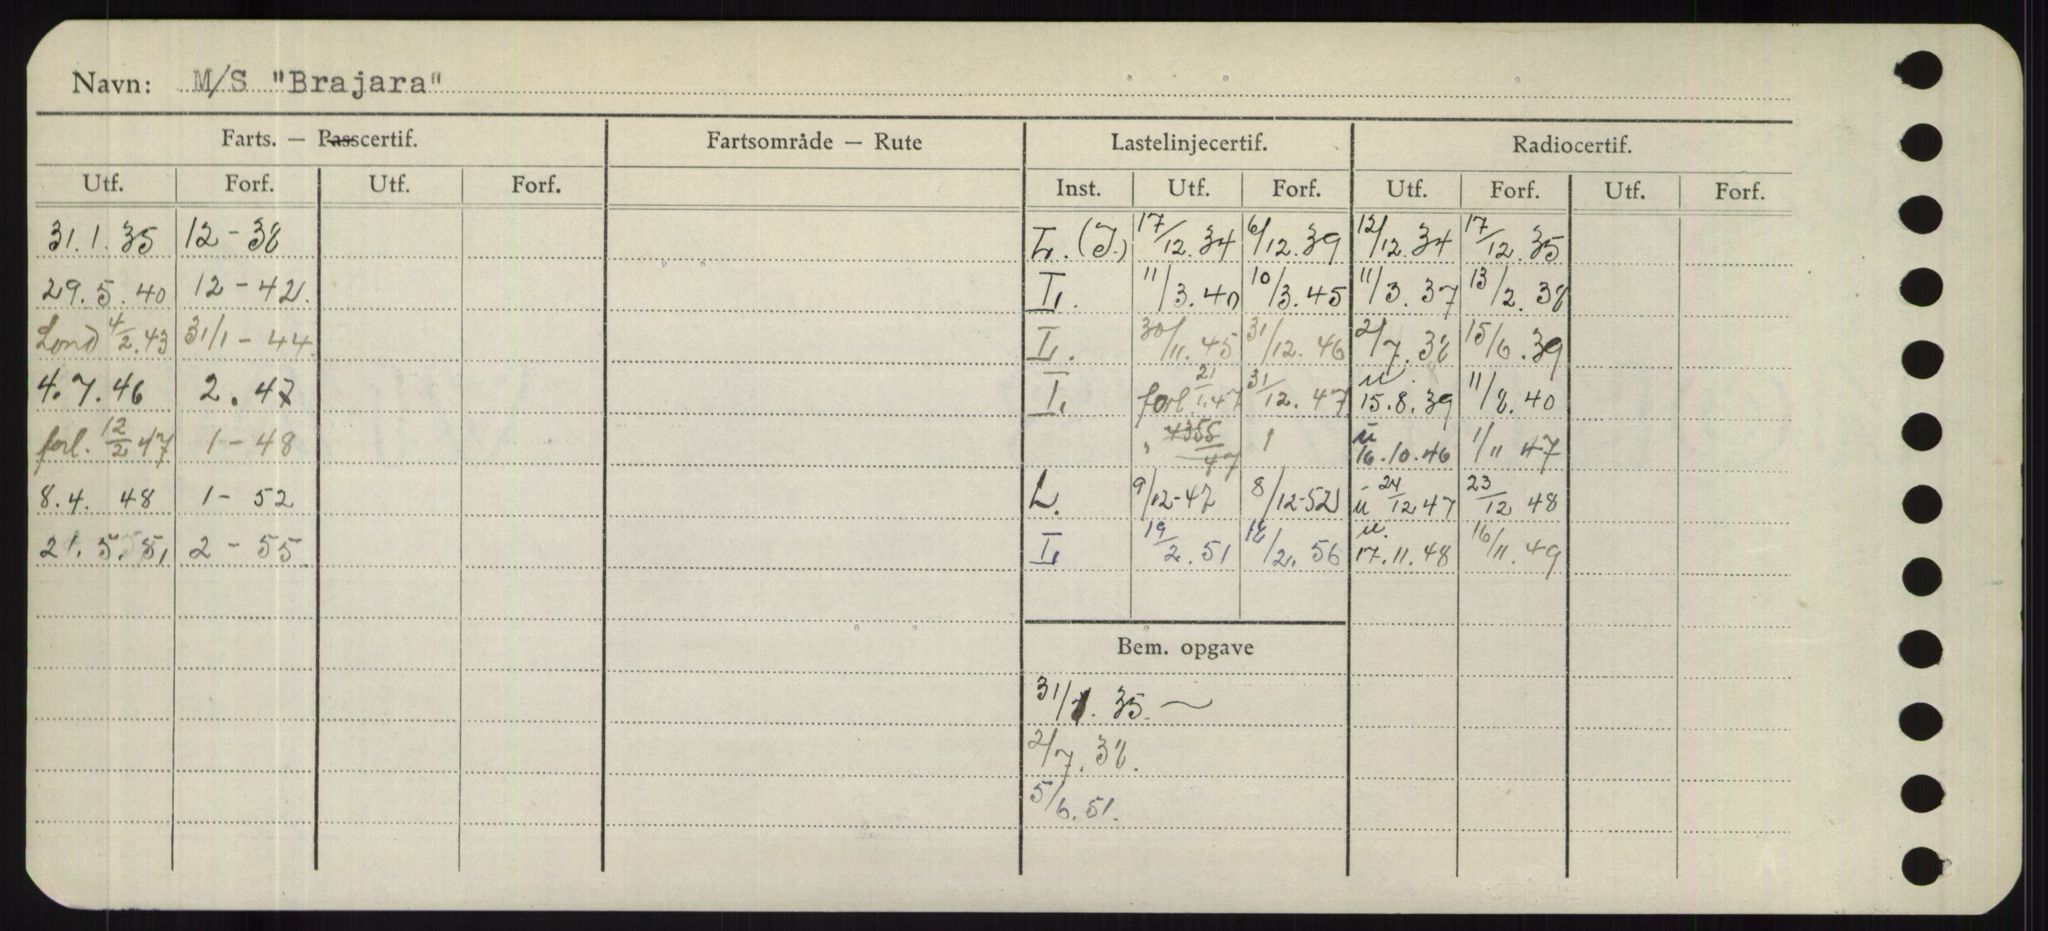 Navn: M/S "Brajara"
Farts. — Passcertif. Fartsområde — Rute Lastelinjecertif. Radiocertif.
Utf. Forf. Utf. Forf. Inst. Utf. Forf. Utf. Forf. Utf. Forf.
31.1.35 12-38 L. (I.) 17/12.34 6/12.39 12/12.34 17/12.35
29.5.40 12-42. L. 11/3.40 10/3.45 11/3.37 13/2.38
Lond 4/2.43 31/1-44. L. 30/11.45 31/12.46 2/7.38 15/6.39
4.7.46 2.47 L. forl. 21/1.47 31/12.47 u 15.8.39 11/8.40
forl. 12/2 47 1-48 " 4355/47 u 16.10.46 1/11 47
8.4.48 1-52 L. 9/12-47 8/12-52 u 24/12 47 23/12 48
21.5.51, 2-55. L 19/2.51 18/2.56 u. 17.11.48 16/11.49
Bem. opgave
31/1.35.
2/7.38.
5/6.51.